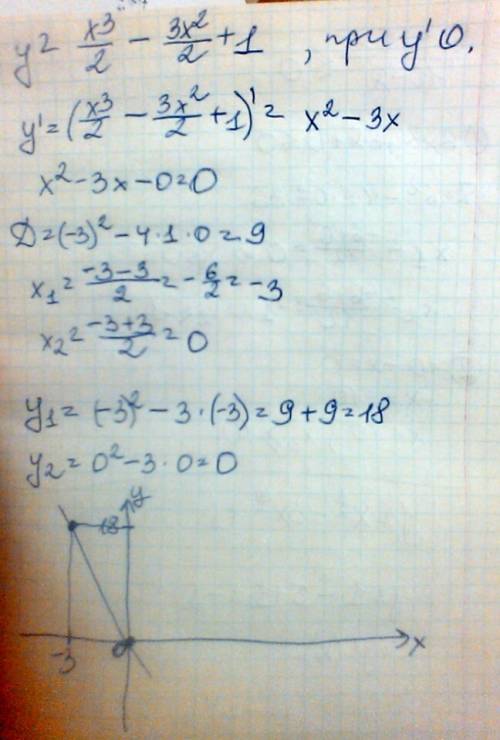 y = x³/2 − 3x²/2 + 1 , при y' 0.
y' = (x³/2 − 3x²/2 + 1)' = x² − 3x
x² − 3x − 0 = 0
D = (−3)² − 4 · 1 · 0 = 9
x₁ = (−3−3)/2 = −6/2 = −3
x₂ = (−3+3)/2 = 0
y₁ = (−3)² − 3 · (−3) = 9 + 9 = 18
y₂ = 0² − 3 · 0 = 0
y
18
−3 0 x